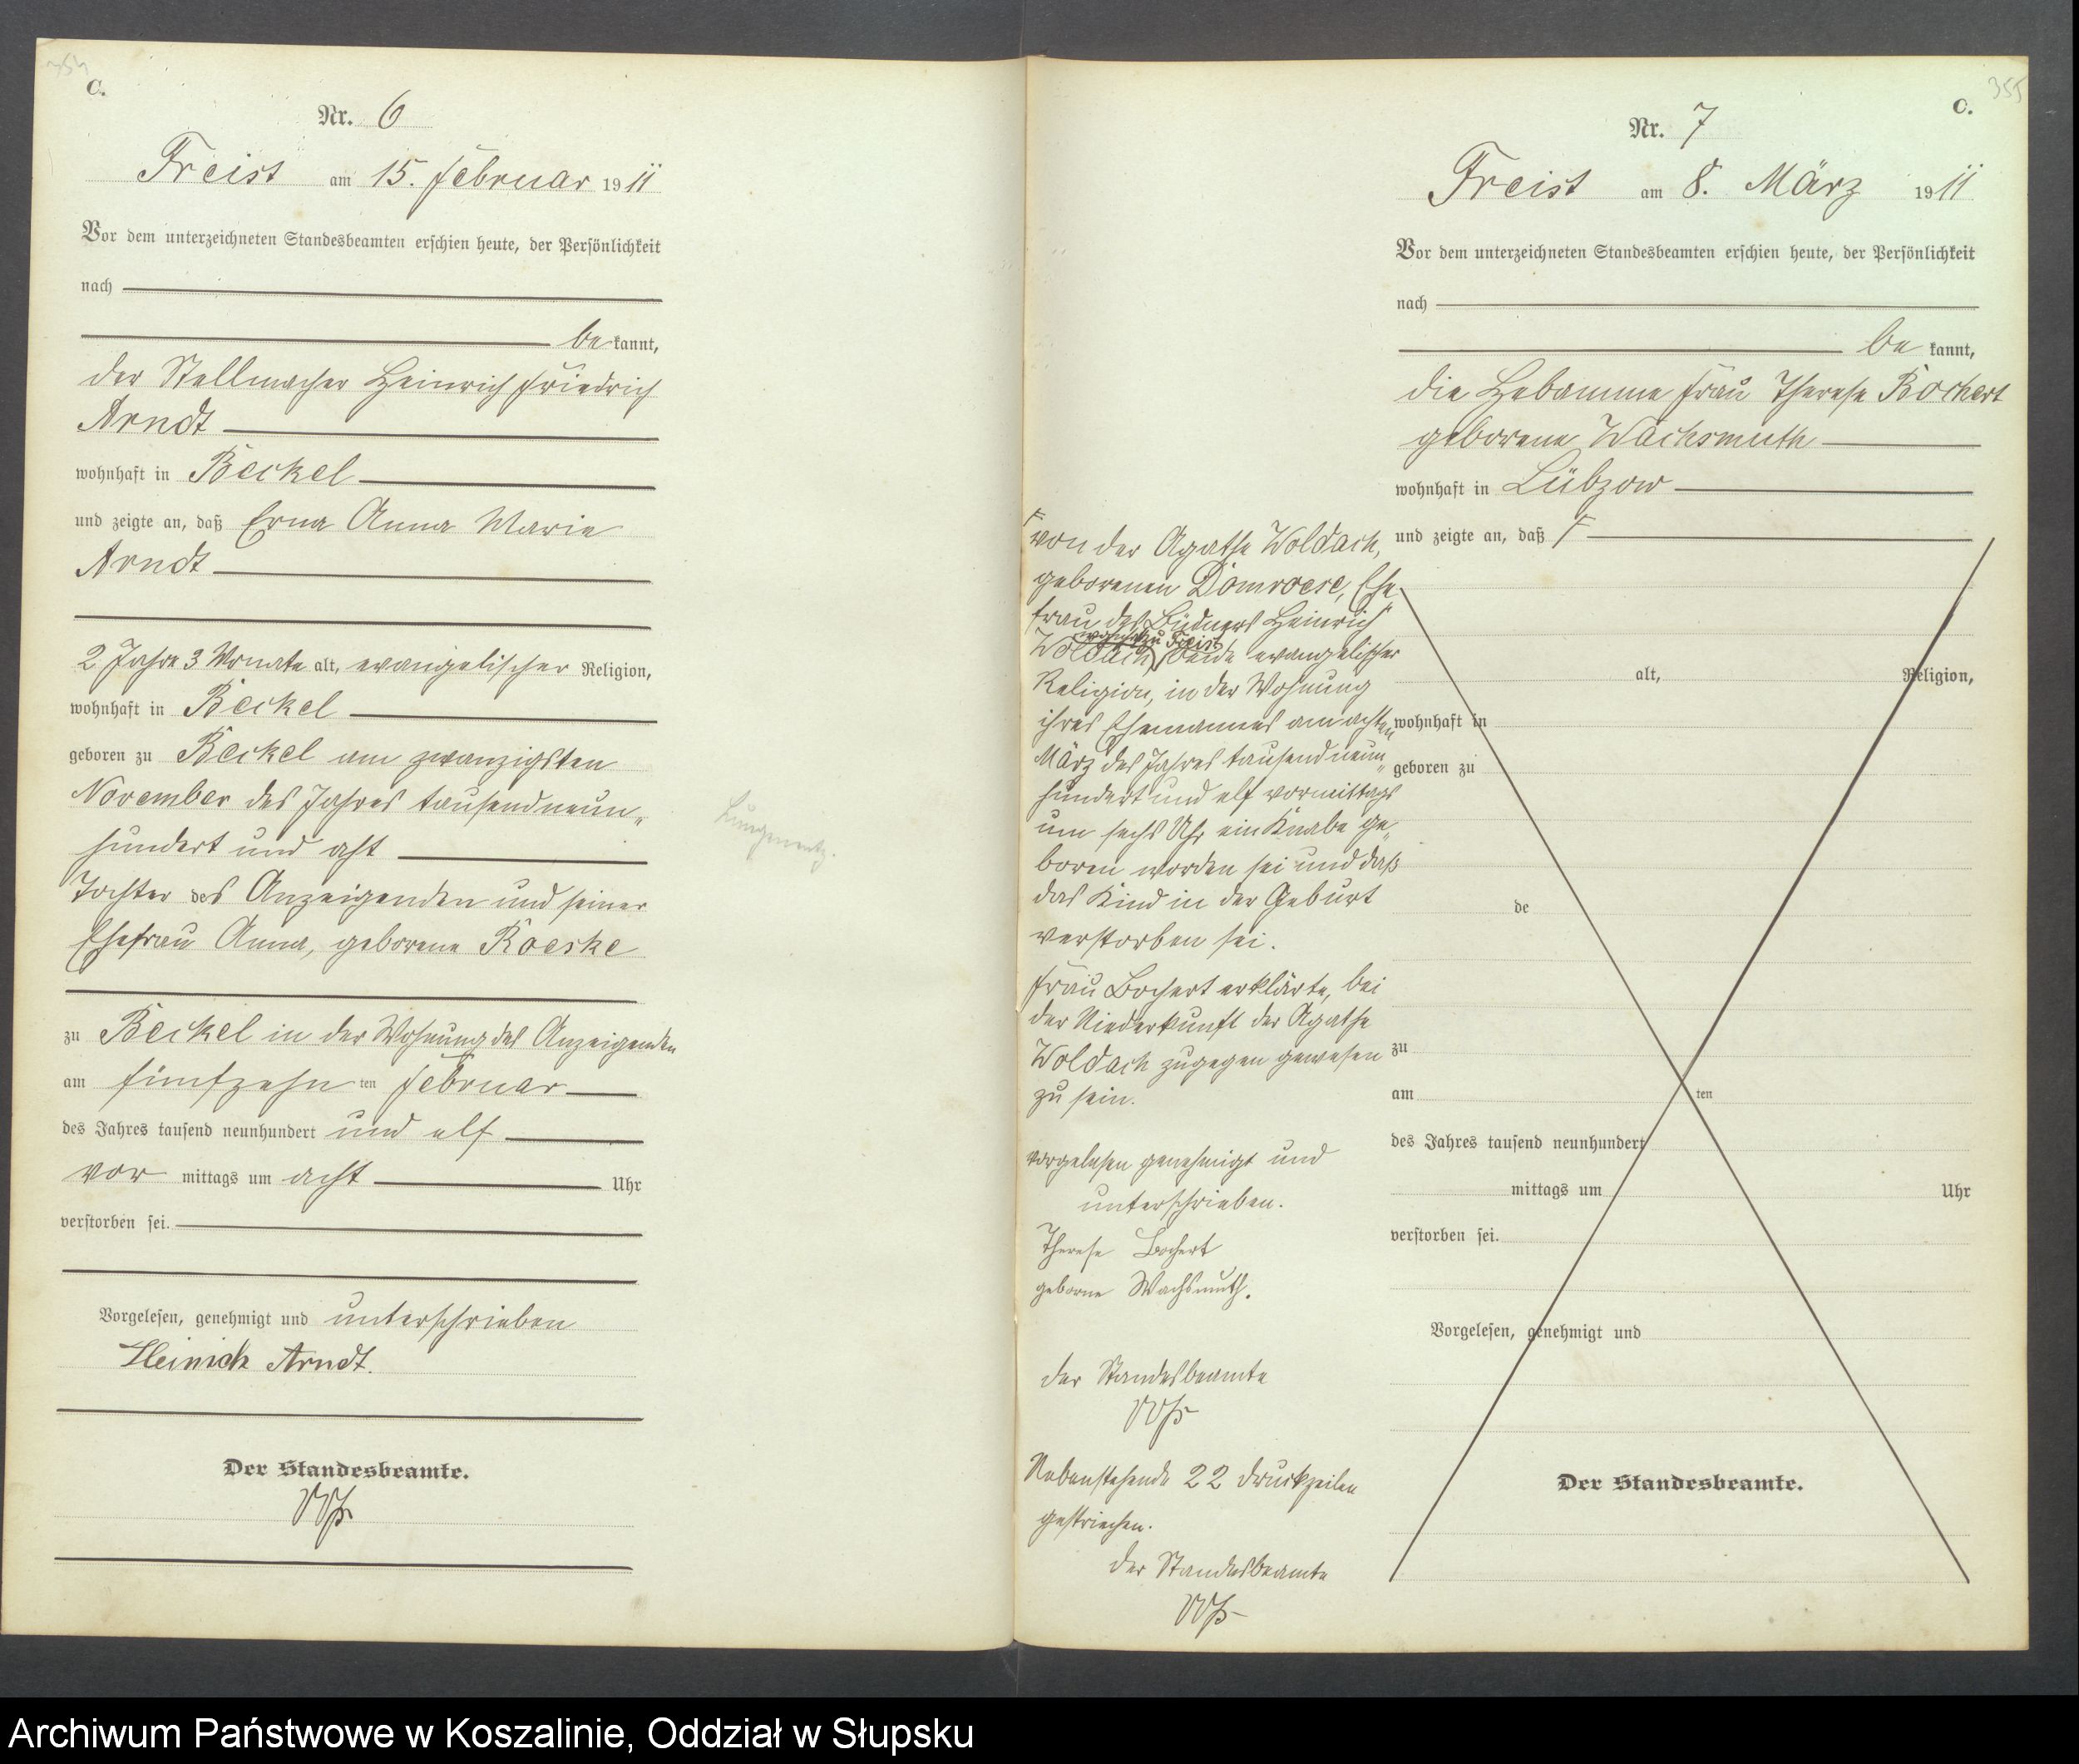 354
C.
Nr. 6
Freist am 15. Februar 1911
Vor dem unterzeichneten Standesbeamten erschien heute, der Persönlichkeit
nach
be kannt,
der Stellmacher Heinrich Friedrich
Arndt
wohnhaft in Beckel
und zeigte an, daß Erna Anna Marie
Arndt
2 Jahre 3 Monate alt, evangelischer Religion,
wohnhaft in Beckel
geboren zu Beckel am zwanzigsten
November des Jahres tausendneun„
hundert und acht
Tochter des Anzeigenden und seiner
Ehefrau Anna, geborene Roeske
zu Beckel in der Wohnung des Anzeigenden
am fünfzehn ten Februar
des Jahres tausend neunhundert und elf
vor mittags um acht Uhr
verstorben sei.
Vorgelesen, genehmigt und unterschrieben
Heinich Arndt.
Der Standesbeamte.
Lungenentz.
355
C.
Nr. 7
Freist am 8. März 1911
Vor dem unterzeichneten Standesbeamten erschien heute, der Persönlichkeit
nach
be kannt,
die Hebamme Frau Therese Bochert
geborene Wachsmuth
wohnhaft in Lübzow
und zeigte an, daß
alt, Religion,
wohnhaft in
geboren zu
de
zu
am ten
des Jahres tausend neunhundert
mittags um Uhr
verstorben sei.
Vorgelesen, genehmigt und
Der Standesbeamte.
von der Agathe Woldach,
geborenen Domroese, Ehe„
frau des Büdners Heinrich
wohnhaft zu Freist
Woldach, beide evangelischer
Religion, in der Wohnung
ihres Ehemannes am achten
März des Jahres tausendneun„
hundert und elf vormittags
um sechs Uhr ein Knabe ge„
boren worden sei und daß
das Kind in der Geburt
verstorben sei.
Frau Bochert erklärte, bei
der Niederkunft der Agathe
Woldach zugegen gewesen
zu sein.
Vorgelesen genehmigt und
unterschrieben.
Therese Bochert
geborne Wachsmuth.
Der Standesbeamte
Nebenstehende 22 Druckzeilen
gestrichen.
Der Standesbeamte
Archiwum Państwowe w Koszalinie, Oddział w Słupsku